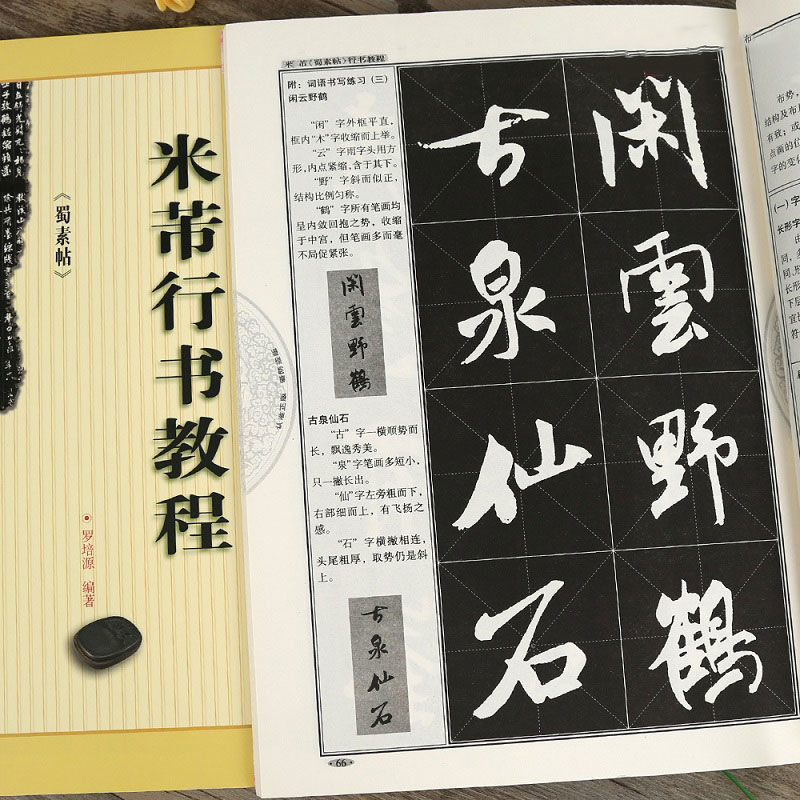 米芾行书教程
《蜀素帖》
罗培源 编著
米芾《蜀素帖》行书教程
附：词语书写练习（三）
闲云野鹤
“闲”字外框平直，
框内“木”字收缩而上举。
“云”字雨字头用方
形，内点紧缩，含于其下。
“野”字斜而似正，
结构比例匀称。
“鹤”字所有笔画均
呈内敛回抱之势，收缩
于中宫，但笔画多而毫
不局促紧张。
閑雲野鶴
古泉仙石
“古”字一横顺势而
长，飘逸秀美。
“泉”字笔画多短小，
只一撇长出。
“仙”字左旁粗而下，
右部细而上，有飞扬之
感。
“石”字横撇相连，
头尾粗厚，取势仍是斜
上。
古泉仙石
閑雲野鶴
古泉仙石
66
布势，
结构及布
有致；或
点画的位
字的变
(一)字
长形字
同，
长形
下